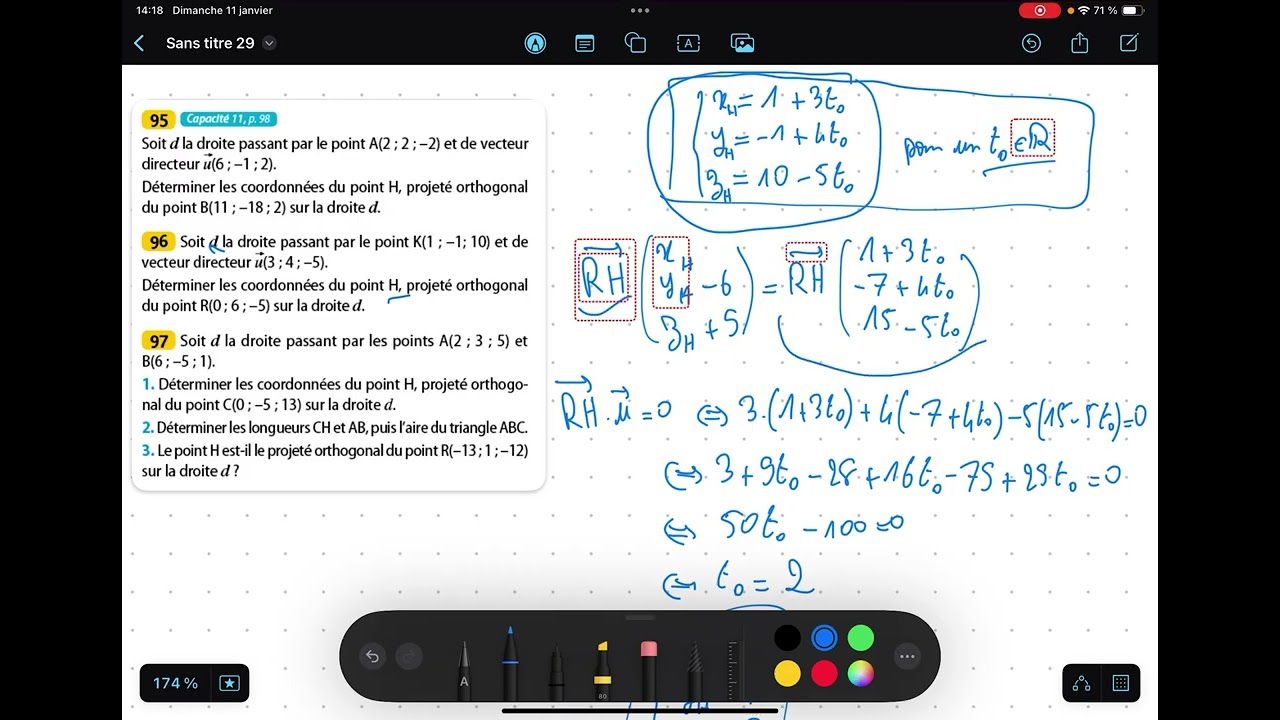 14:18 Dimanche 11 janvier
71 %
Sans titre 29
95 Capacité 11, p. 98
Soit d la droite passant par le point A(2 ; 2 ; −2) et de vecteur
directeur u⃗(6 ; −1 ; 2).
Déterminer les coordonnées du point H, projeté orthogonal
du point B(11 ; −18 ; 2) sur la droite d.
96 Soit d la droite passant par le point K(1 ; −1; 10) et de
vecteur directeur u⃗(3 ; 4 ; −5).
Déterminer les coordonnées du point H, projeté orthogonal
du point R(0 ; 6 ; −5) sur la droite d.
97 Soit d la droite passant par les points A(2 ; 3 ; 5) et
B(6 ; −5 ; 1).
1. Déterminer les coordonnées du point H, projeté orthogo-
nal du point C(0 ; −5 ; 13) sur la droite d.
2. Déterminer les longueurs CH et AB, puis l'aire du triangle ABC.
3. Le point H est-il le projeté orthogonal du point R(−13 ; 1 ; −12)
sur la droite d ?
x_H = 1 + 3t₀
y_H = −1 + 4t₀
z_H = 10 − 5t₀
pour un t₀ ∈ ℝ
RH⃗ (x_H ; y_H − 6 ; z_H + 5) = RH⃗ (1 + 3t₀ ; −7 + 4t₀ ; 15 − 5t₀)
RH⃗ . u⃗ = 0 ⇔ 3.(1+3t₀) + 4(−7+4t₀) − 5(15−5t₀) = 0
⇔ 3 + 9t₀ − 28 + 16t₀ − 75 + 25t₀ = 0
⇔ 50t₀ − 100 = 0
⇔ t₀ = 2
A
80
174 %